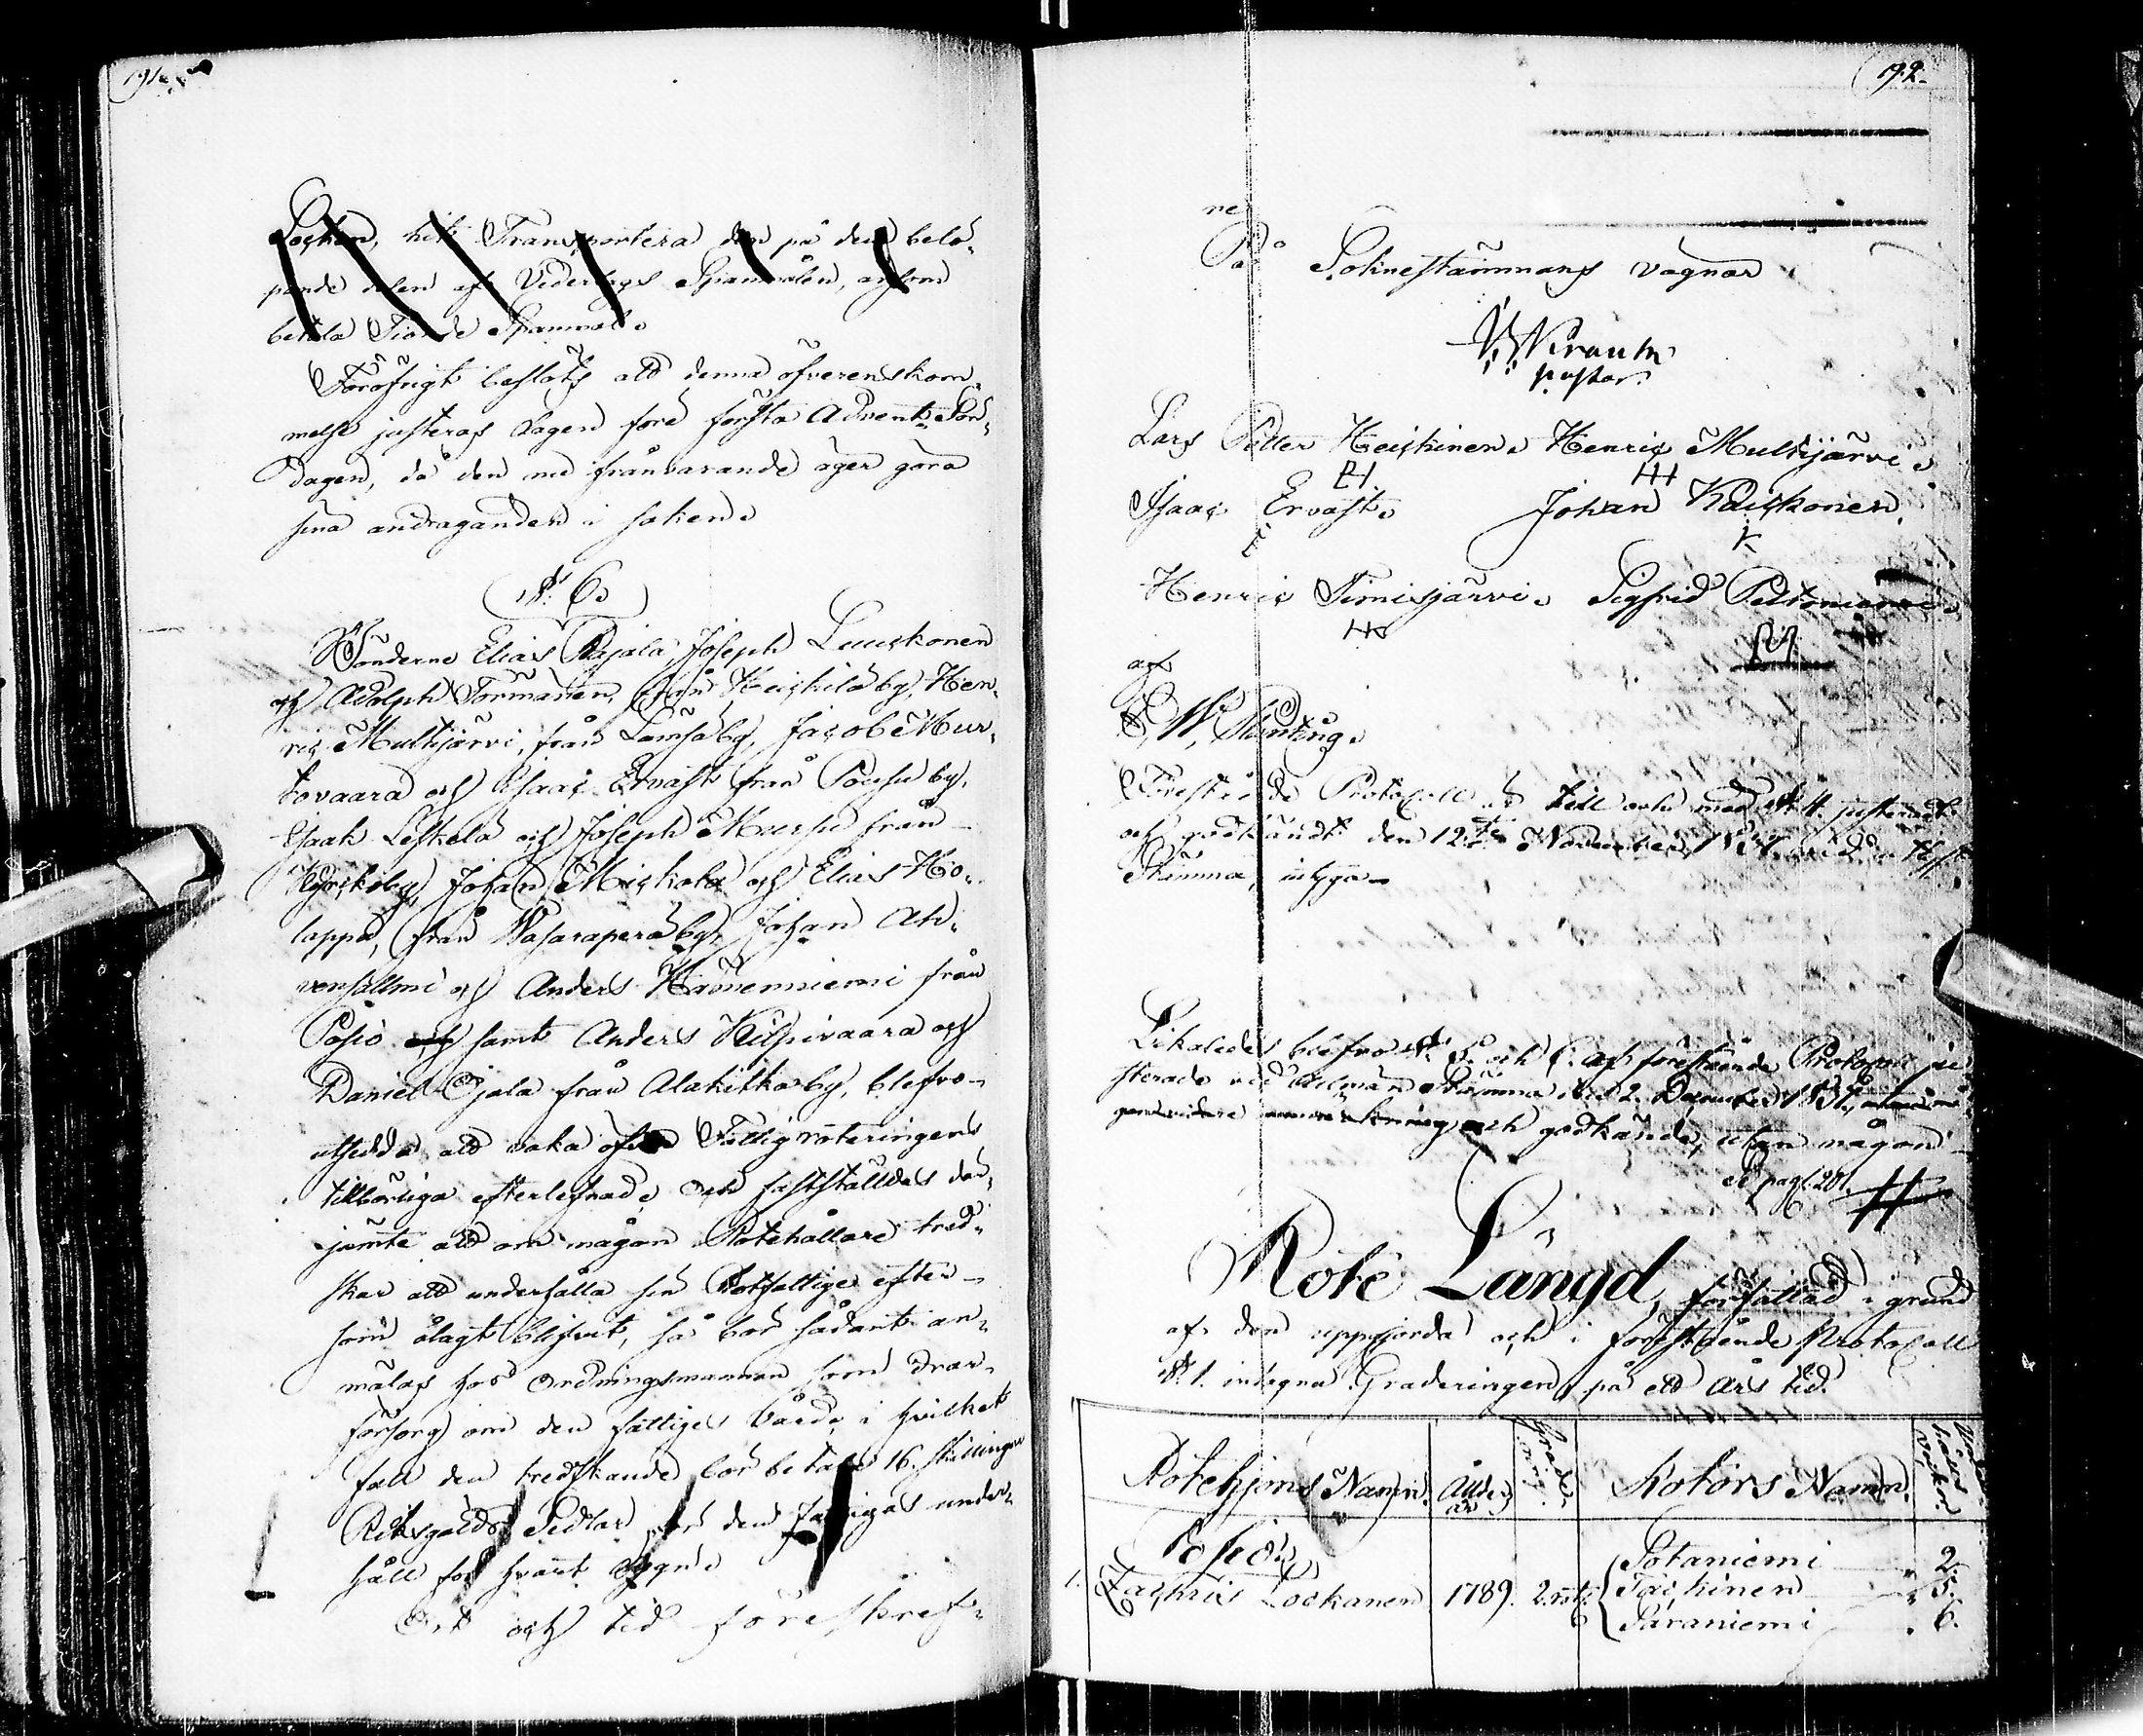 191.
Socken, hit Transportera den på dem belö-
pande delen af Vederlags Spanmålen, ansom
betala Tionde Spanmål.
Föröfrigt beslöts att denna öfverenskom-
melse justeras dagen före första Advents Sön-
dagen, då den nu frånvarande äger göra
sina andraganden i saken.
N:o 6.
Bönderne Elias Rajala, Joseph Luuskonen
och Adolph Törmänen, från Heiskilä by, Hen-
ric Mulkijärvi, från Lämsä by, Jacob Mur-
tovaara och Isaac Ervast från Poussu by,
Isaak Leskelä och Joseph Moursu från
Kurcki by, Johan Mickola och Elias Ho-
lappa, från Wasaraperä by, Johan Ah-
vensallmi och Anders Hänenniemi från
Posio och samt Anders Kilpivaara och
Daniel Ojala från Alakitka by, blefvo
utsedda att vaka öfver Fattigroteringens
tillbörliga efterlefnad, och fastställdes der-
jämte att om någon Rotehållare tred-
skar att underhålla sin Rotfattige efter
som ålagt blifvit, så bör sådant an-
mälas hos Ordningsmannen som drar
försorg om den fattiges vård, i hvilket
fall den tredskande bör betala 16 skillingar
Riksgälds Sedlar för den fattigas under-
håll för hvart dygn.
Ort och tid föreskref-
192.
ne
På Soknestämmans vägnar
pastor.
Lars Petter Heiskinen. Henric Mulkijärvi.
PH. HH
Isaac Ervast. Johan Kaiskonen.
E K
Henric Timisjärvi. Sigfrid Peltoniemi.
af
Förestående Protocoll är till och med N:o 4. justeradt
och godkändt den 12:te November
Stämma, intyga
Likaledes blefvo N:o 5. och 6. af förestående Protocoll ju-
sterade vid Allmän Stämma den 2. December
och godkända, utan någon
Se pag. 201. #
Rote Längd, författad i grund
af den uppgjorda och i förestående Protocoll
N:o 1. intagna Graderingen, på ett års tid.
Rotehjons Namn. Ålder år. Grade- ring. Rotörs Namn.
Posio.
1. Zachris Lockanen 1789. 2. rote. Potaniemi 2.
Täckinen 5.
Saraniemi 6.